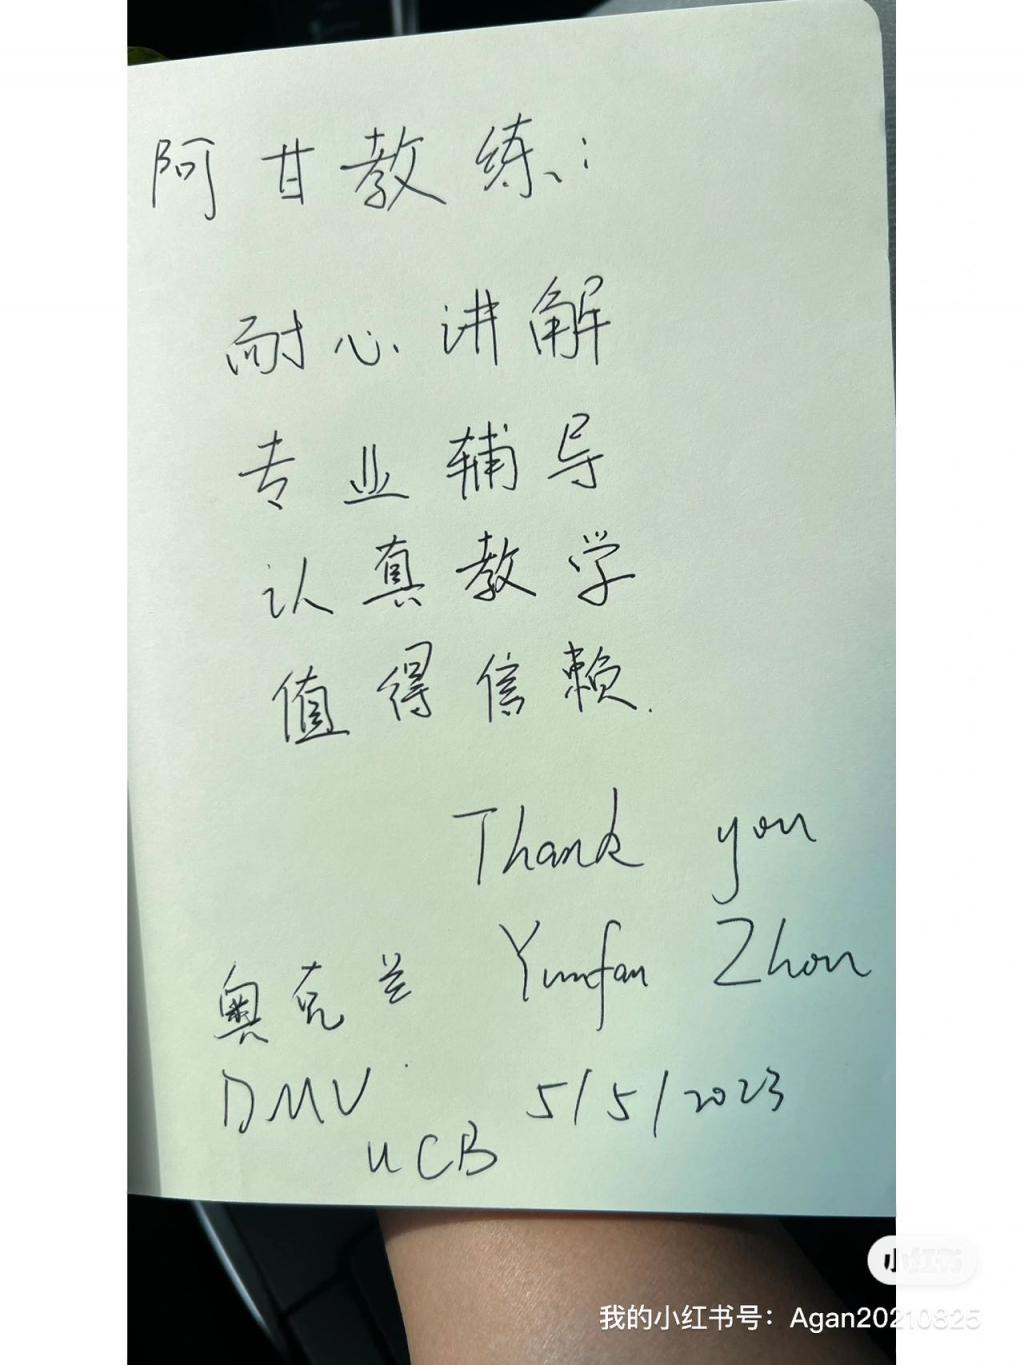 阿甘教练:
耐心讲解
专业辅导
认真教学
值得信赖.
Thank you
Yunfan Zhou
奥克兰
DMV
5/5/2023
UCB
小红书
我的小红书号：Agan20210825